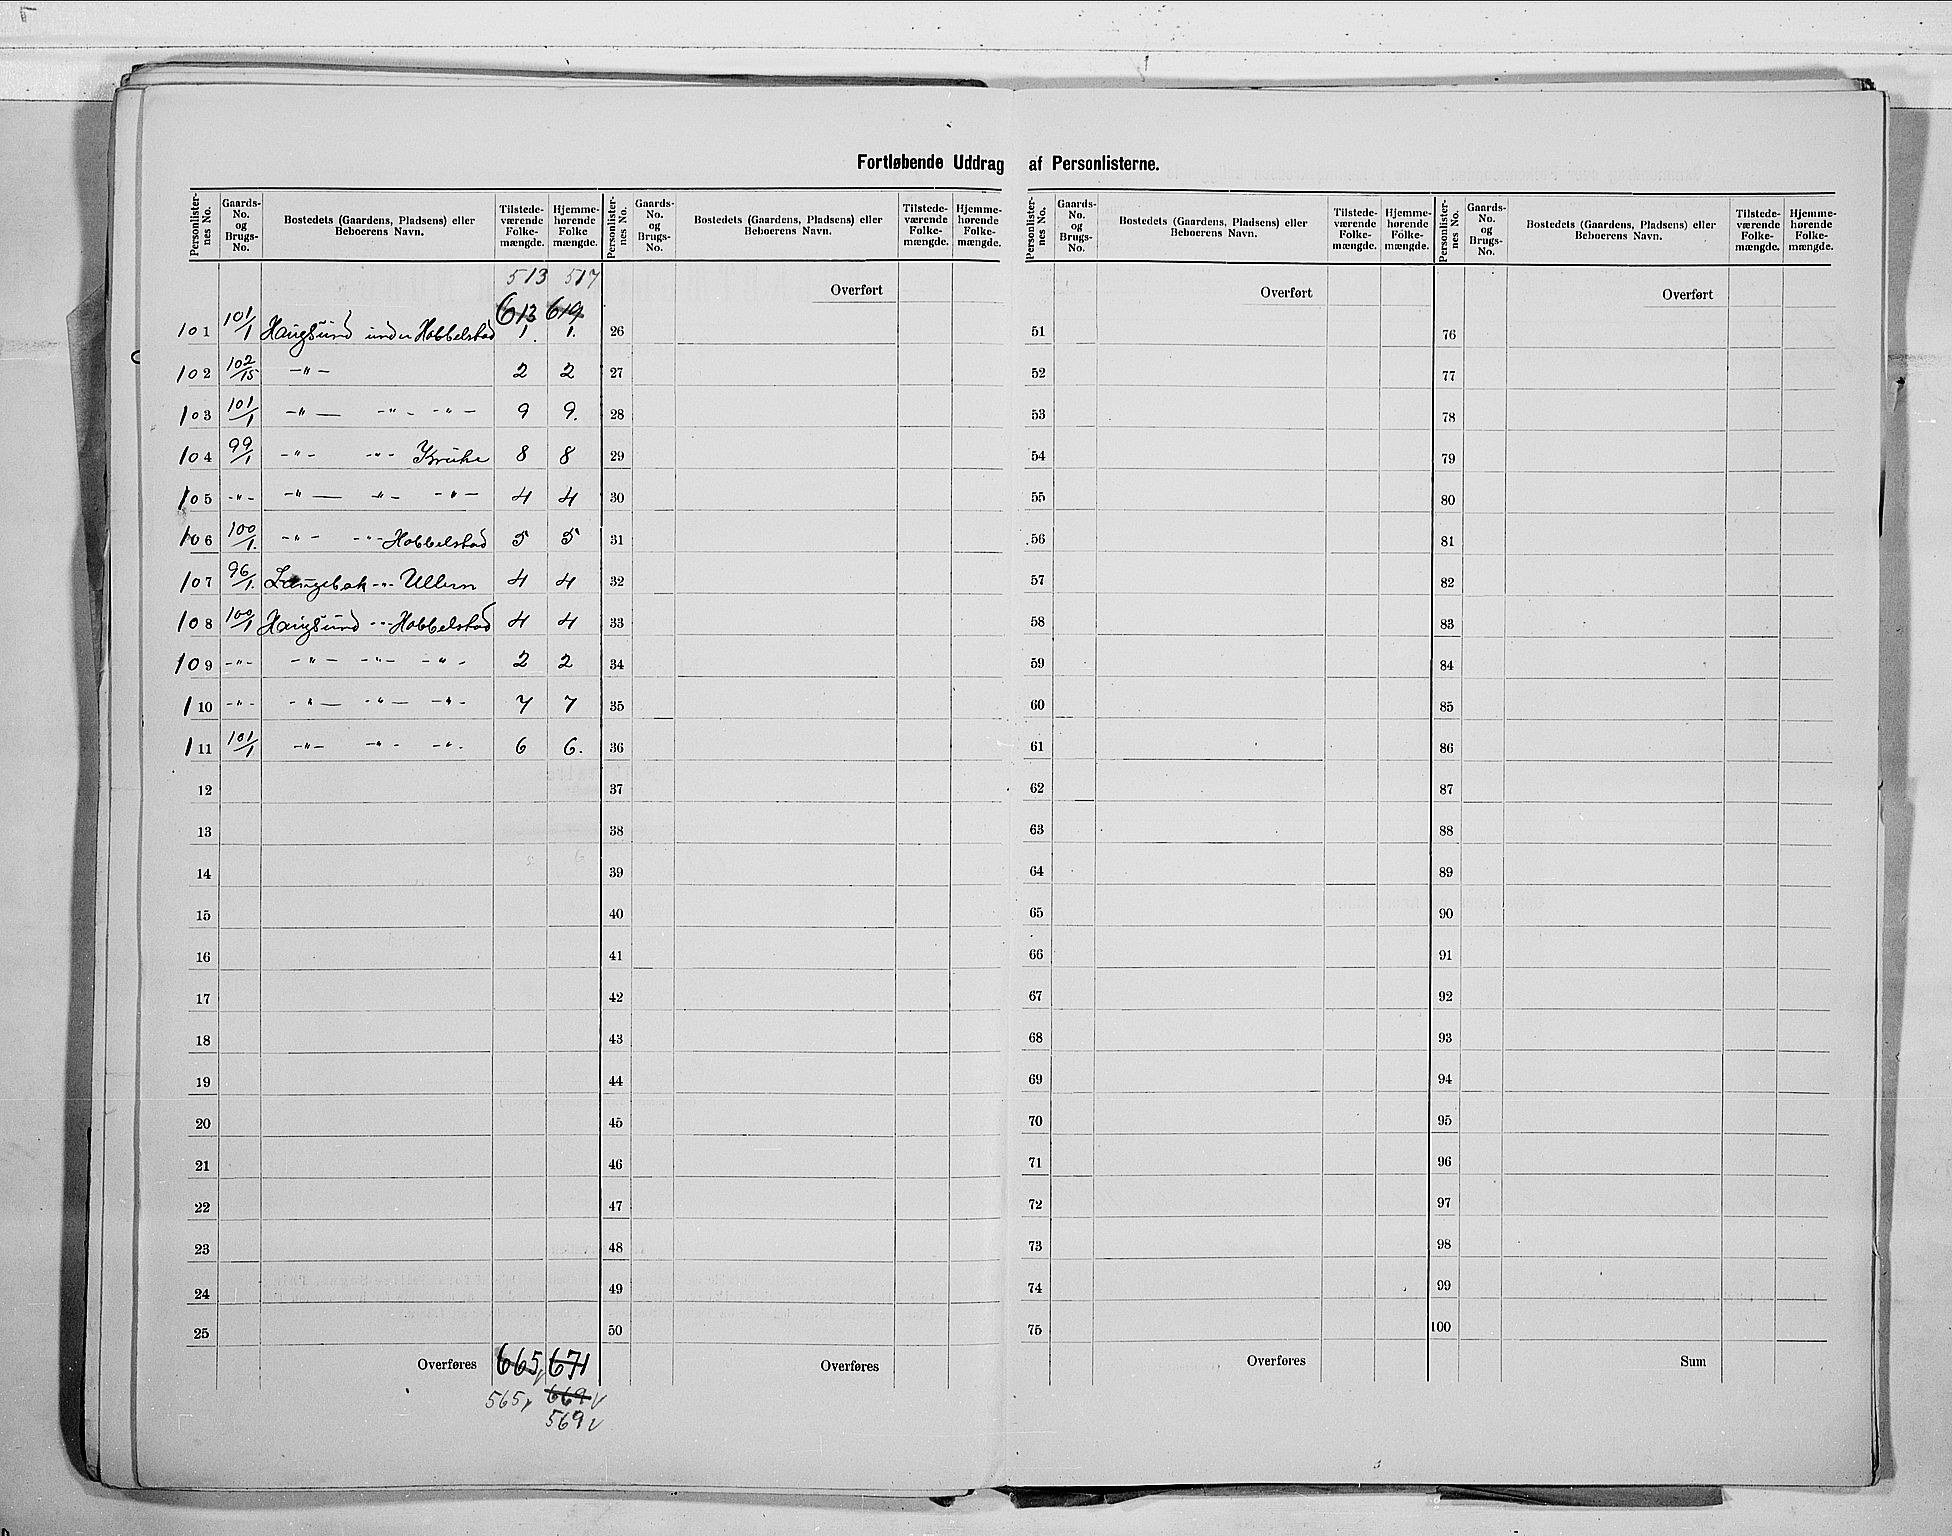 Fortløbende Uddrag af Personlisterne.
Personlister-nes No. Gaards-No. og Brugs-No. Bostedets (Gaardens, Pladsens) eller Beboerens Navn. Tilstede-værende Folke-mængde. Hjemme-hørende Folke mængde.
Personlister-nes No. Gaards-No. og Brugs-No. Bostedets (Gaardens, Pladsens) eller Beboerens Navn. Tilstede-værende Folke-mængde. Hjemme-hørende Folke-mængde.
Personlister-nes No. Gaards-No. og Brugs-No. Bostedets (Gaardens, Pladsens) eller Beboerens Navn. Tilstede-værende Folke-mængde. Hjemme-hørende Folke-mængde.
Personlister-nes No. Gaards-No. og Brugs-No. Bostedets (Gaardens, Pladsens) eller Beboerens Navn. Tilstede-værende Folke-mængde. Hjemme-hørende Folke-mængde.
513 517
613 619
101 101/1 Haugsund under Hobbelstad 1. 1.
102 102/15 -"- 2 2
103 101/1 -"- -"- -"- 9 9.
104 99/1 -"- -"- 8 8
105 -"- -"- -"- -"- 4 4
106 100/1. -"- -"- Hobbelstad 5 5
107 96/1. Langebak -"- Ullern 4 4
108 100/1 Haugsund -"- Hobbelstad 4 4
109 -"- -"- -"- -"- 2 2
110 -"- -"- -"- -"- 7 7
111 101/1 -"- -"- -"- 6 6.
12
13
14
15
16
17
18
19
20
21
22
23
24
25
Overføres 665 671
565 669
569
Overført
26
27
28
29
30
31
32
33
34
35
36
37
38
39
40
41
42
43
44
45
46
47
48
49
50
Overføres
Overført
51
52
53
54
55
56
57
58
59
60
61
62
63
64
65
66
67
68
69
70
71
72
73
74
75
Overføres
Overført
76
77
78
79
80
81
82
83
84
85
86
87
88
89
90
91
92
93
94
95
96
97
98
99
100
Sum